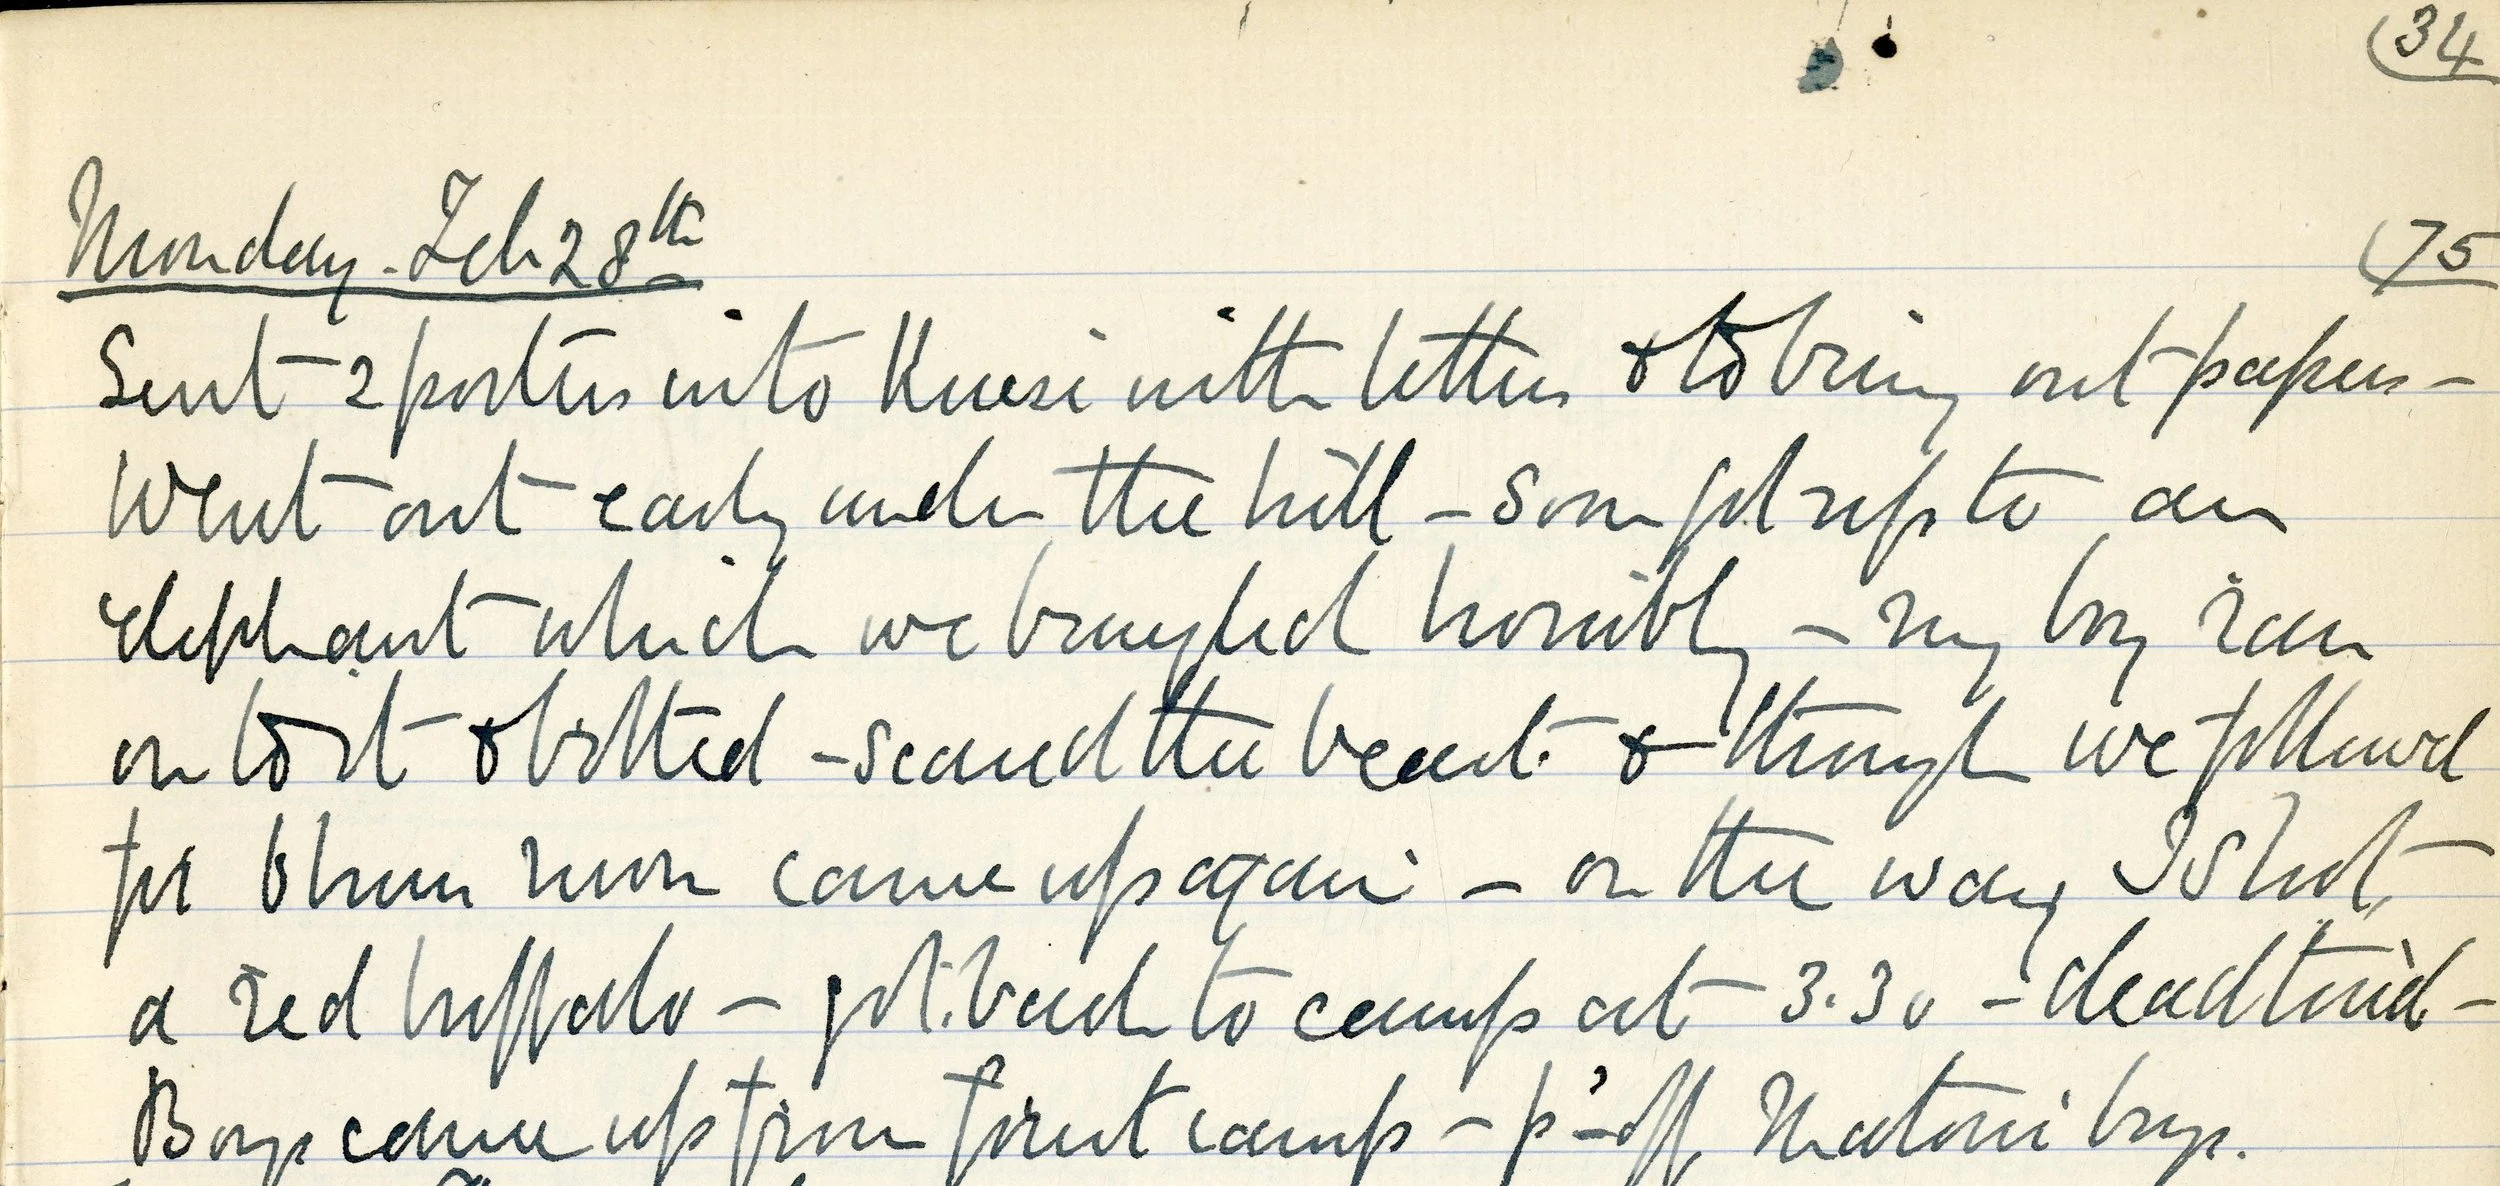 34
Monday. Feb 28th
75
Sent 2 porters into with letters & to bring out papers -
Went out early under the hill - soon got up to an
elephant which we bungled horribly - my boy ran
on to it & bolted - scared the beast & though we followed
for 6 hours never came up again - on the way I shot
a red buffalo - got back to camp at 3.30 - dead tired -
Boys came up from first camp - p'-off boys.